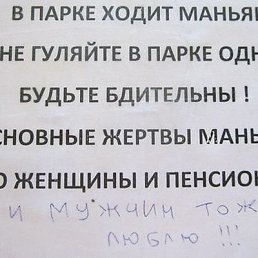 В ПАРКЕ ХОДИТ МАНЬЯ
НЕ ГУЛЯЙТЕ В ПАРКЕ ОДН
БУДЬТЕ БДИТЕЛЬНЫ !
СНОВНЫЕ ЖЕРТВЫ МАНЬ
О ЖЕНЩИНЫ И ПЕНСИО
И МУЖЧИН ТОЖ
ЛЮБЛЮ !!!